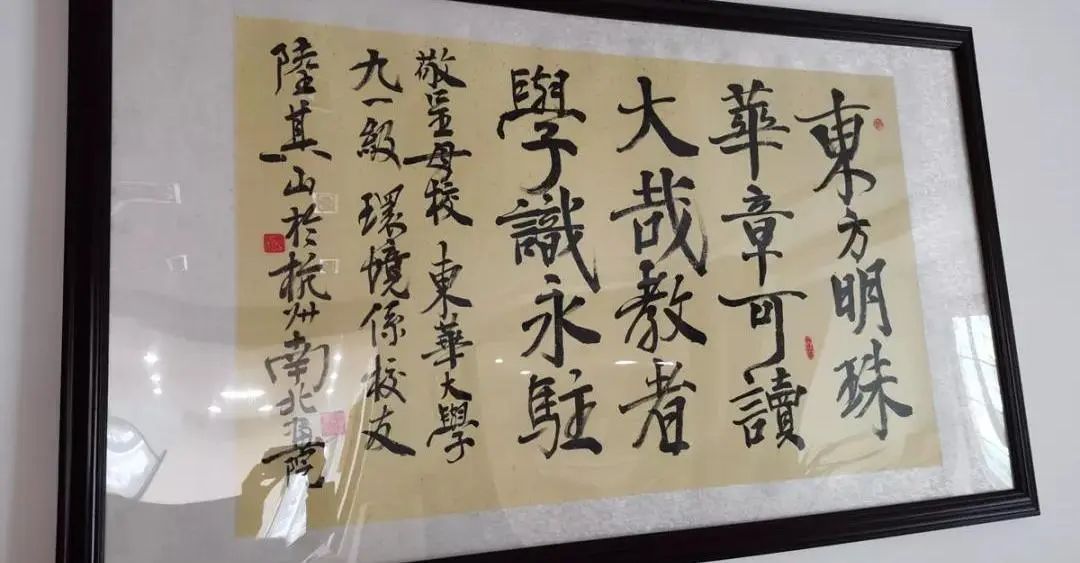 東方明珠
華章可讀
大哉教者
學識永駐
敬呈母校 東華大學
九一級 環境係校友
陸其山於杭州南北 院